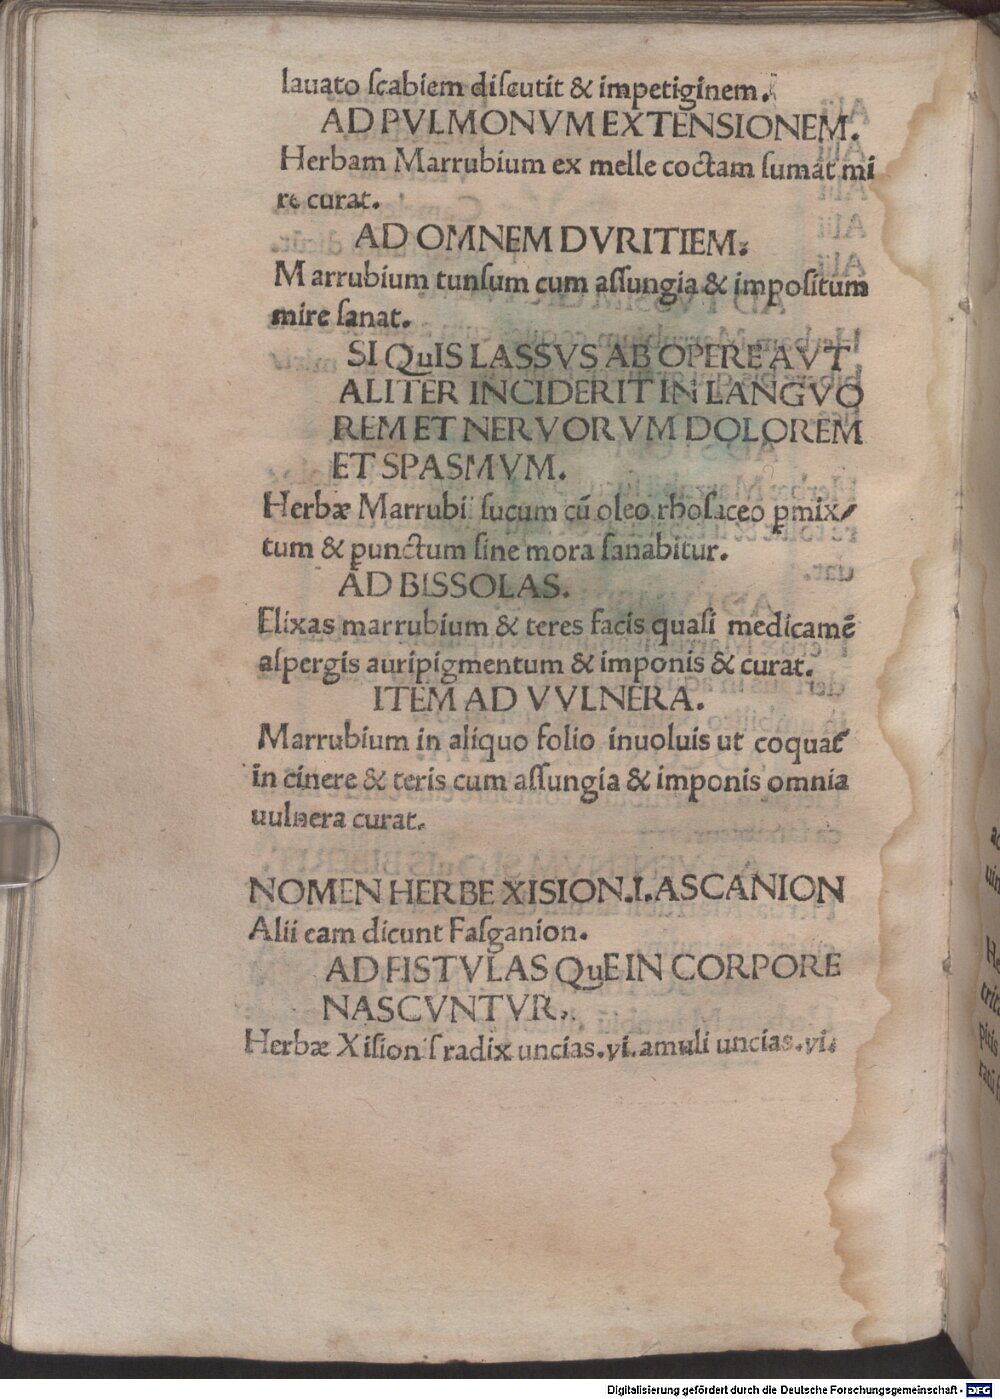 lauato ſcabiem diſcutit & impetiginem.
AD PVLMONVM EXTENSIONEM.
Herbam Marrubium ex melle coctam ſumat mi
re curat.
AD OMNEM DVRITIEM.
Marrubium tunſum cum aſſungia & impoſitum
mire ſanat.
SI QuIS LASSVS AB OPERE AVT
ALITER INCIDERIT IN LANGVO
REM ET NERVORVM DOLOREM
ET SPASMVM.
Herbæ Marrubi ſucum cū oleo rhoſaceo ꝑmix⸗
tum & ꝑunctum ſine mora ſanabitur.
AD BISSOLAS.
Elixas marrubium & teres facis quaſi medicamē
aſpergis auripigmentum & imponis & curat.
ITEM AD VVLNERA.
Marrubium in aliquo folio inuoluis ut coquat
in cinere & teris cum aſſungia & imponis omnia
uulnera curat.
NOMEN HERBE XISION.I.ASCANION
Alii eam dicunt Faſganion.
AD FISTVLAS QuE IN CORPORE
NASCVNTVR.
Herbæ Xiſionſ radix uncias.vi.amuli uncias.vi.
Digitalisierung gefördert durch die Deutsche Forschungsgemeinschaft - DFG